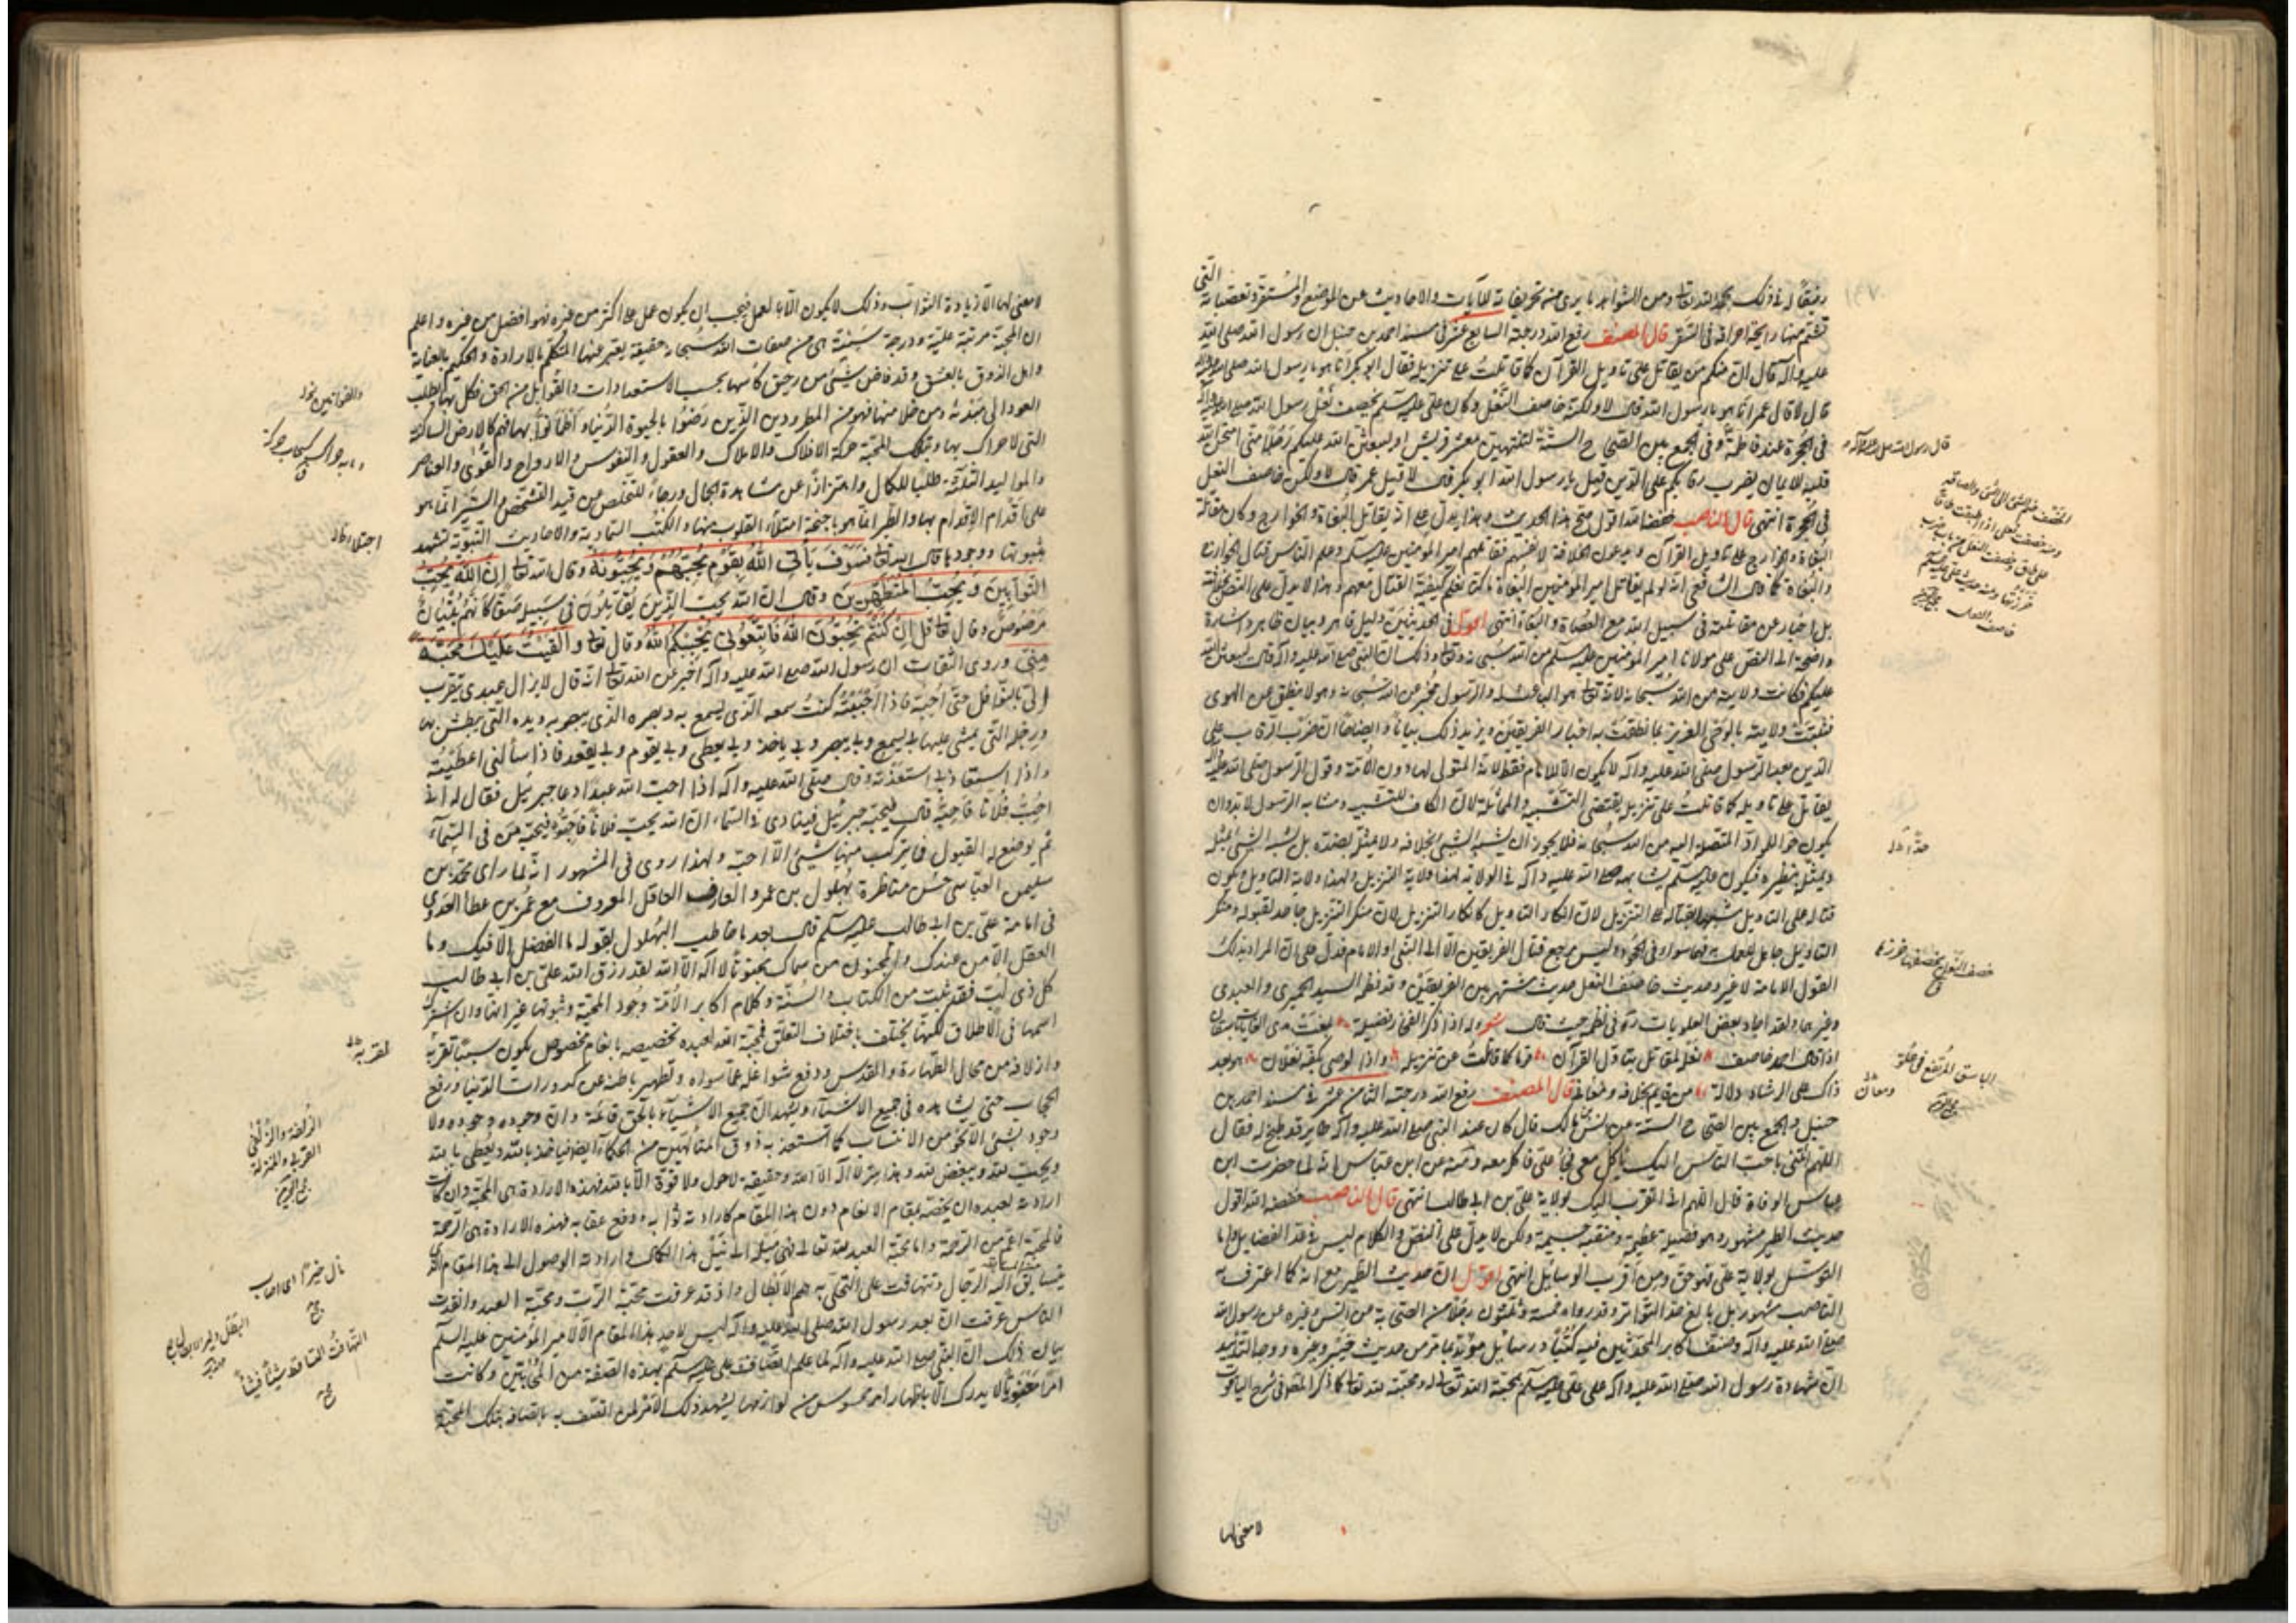 التي
رفيقا له في ذلك بحمد الله تعالى ومن الشواهد ما يرى منه تحريفاته للآيات والاحاديث عن الموضع والمستقر وتعصباته
تشم منها رايحة احراقه في السقر قال المصنف رفع الله درجته السابع عشر في مسند احمد بن حنبل ان رسول الله صلى الله
عليه وآله قال ان منكم من يقاتل على تأويل القرآن كما قاتلت على تنزيله فقال ابو بكر انا هو يا رسول الله صلى الله عليه وآله
قال لا قال عمر انا هو يا رسول الله قال لا ولكنه خاصف النعل وكان علي عليه السلم يخصف نعل رسول الله صلى الله عليه وآله
في الحجرة عند فاطمة وفي الجمع بين الصحاح الستة لتنتهين معشر قريش او ليبعثن الله عليكم رجلا مني امتحن الله
قلبه للايمان يضرب رقابكم على الدين قيل يا رسول الله ابو بكر قال لا قيل عمر قال لا ولكن خاصف النعل
في الحجرة انتهى قال الناصب خفضه الله اقول صح هذا الحديث وهذا يدل على انه يقاتل البغاة والخوارج وكان مقاتلة
البغاة والخوارج على تأويل القرآن ويدعون الخلافة لانفسهم فقاتلهم امير المؤمنين عليه السلم وعلم الناس قتال الخوارج
والبغاة كما قال الشافعي انه لو لم يقاتل امير المؤمنين البغاة ما كنا نعلم كيفية القتال معهم وهذا لا يدل على النص بخلافته
بل اخبار عن مقاتلته في سبيل الله مع العصاة والبغاة انتهى اقول في الحديثين دليل ظاهر وبيان ظاهر واشارة
واضحة الى النص على مولانا امير المؤمنين عليه السلم من الله سبحانه وتعالى وذلك ان النبي صلى الله عليه وآله قال ليبعثن الله
عليكم فكانت ولايته من الله سبحانه لانه تعالى هو الباعث له والرسول مخبر عن الله سبحانه وهو لا ينطق عن الهوى
فثبتت ولايته بالوحي العزيز بما نطقت به اخبار الفريقين ويزيد ذلك بيانا وايضاحا ان ضرب الرقاب على
الدين بعد الرسول صلى الله عليه وآله لا يكون الا للامام فقط لانه المتولي لها دون الامة وقول الرسول صلى الله عليه وآله
يقاتل على تأويله كما قاتلت على تنزيله يقتضي التشبيه والمماثلة لان الكاف للتشبيه ومشابه الرسول لا بد وان
يكون خوالله اذ المتصل اليه من الله سبحانه فلا يجوز ان يشبه الشيء بخلافه ولا يمثله بضده بل يشبه الشيء بمثله
ويمثل بنظيره فيكون عليه السلم يشابهه صلى الله عليه وآله في الولاية لهذا ولاية التنزيل ولهذا ولاية التأويل ويكون
قتاله على التأويل مشبها بقتاله على التنزيل لان انكار التأويل كانكار التنزيل لان منكر التنزيل جاحد لقبوله ومنكر
التأويل جاحد للعمل به فهما سواء في الجحود وليس مرجع قتال الفريقين الا الى النبي او الامام فدل على ان المراد بذلك
القول الامامة لا غير وحديث خاصف النعل حديث مشتهر بين الفريقين وقد نظمه السيد الحميري والعبدي
وغيرهما ولقد اجاد بعض العلويات ره في نظمه حيث قال شعر
اذا قال احمد خاصف نعل لمقاتل بتأول القرآن قوما كما قاتلت عن تنزيله واذا الوصي بكفه نعلان
ذاك على الرشاد دلالة من قايم بخلافة ومعاني قال المصنف رفع الله درجته الثامن عشر في مسند احمد بن
حنبل والجمع بين الصحاح الستة عن انس بن مالك قال كان عند النبي صلى الله عليه وآله طاير قد طبخ له فقال
اللهم ائتني باحب الناس اليك يأكل معي فجاء علي فاكل معه ومنه عن ابن عباس انه لما حضرت ابن
عباس الوفاة قال اللهم اني اتقرب اليك بولاية علي بن ابي طالب انتهى قال الناصب خفضه الله اقول
حديث الطير مشهور وهو فضيلة عظيمة ومنقبة جسيمة ولكن لا يدل على النص والكلام ليس في عد الفضايل واما
التوسل بولاية علي فهو حق ومن اقرب الوسائل انتهى اقول ان حديث الطير مع انه كما اعترف به
الناصب مشهور بل بالغ حد التواتر وقد رواه خمسة وثلثون رجلا من الصحابة عن انس وغيره عن رسول الله
صلى الله عليه وآله وصنف اكابر المحدثين فيه كتبا ورسائل مؤيد بما مر من حديث خيبر وغيره ووجه التأييد
ان شهادة رسول الله صلى الله عليه وآله على علي عليه السلم بمحبة الله تعالى له ومحبته لله تعالى كما ذكر المص في شرح الياقوت
لا معنى لها
قال رسول الله صلى الله عليه وآله
خصف النعل يخصفها خرزها
لا معنى لها الا زيادة الثواب وذلك لا يكون الا بالعمل فيجب ان يكون عمل علي اكثر من غيره فهو افضل من غيره واعلم
ان المحبة مرتبة علية ودرجة سنية هي من صفات الله سبحانه حقيقة يعبر عنها المتكلم بالارادة والحكيم بالعناية
واهل الذوق بالعشق وقد فاض شيء من رحيق كأسها بحسب الاستعدادات والقوابل من الحق فكل بها يطلب
العود الى مبدئه ومن خلا منها فهو من المطرودين الذين رضوا بالحيوة الدنيا واطمأنوا بها فهم كالارض الساكنة
التي لا حراك بها وبتلك المحبة حركة الافلاك والاملاك والعقول والنفوس والارواح والقوى والعناصر
والمواليد الثلثة طلبا للكمال واهتزازا عن مشاهدة الجمال ورجاء للتخلص من قيد التشخص والسير انما هو
على اقدام الاقدام بها والطيران انما هو باجنحة امتلاء القلوب منها والكتب السماوية والاحاديث النبوية تشهد
بثبوتها ووجودها قال الله تعالى فسوف يأتي الله بقوم يحبهم ويحبونه وقال الله تعالى ان الله يحب
التوابين ويحب المتطهرين وقال ان الله يحب الذين يقاتلون في سبيله صفا كأنهم بنيان
مرصوص وقال تعالى قل ان كنتم تحبون الله فاتبعوني يحببكم الله وقال تعالى والقيت عليك محبة
مني وروى الثقات ان رسول الله صلى الله عليه وآله اخبر عن الله تعالى انه قال لا يزال عبدي يتقرب
الي بالنوافل حتى احبه فاذا احببته كنت سمعه الذي يسمع به وبصره الذي يبصر به ويده التي يبطش بها
ورجله التي يمشي عليها بي يسمع وبي يبصر وبي يأخذ وبي يعطي وبي يقوم وبي يقعد فاذا سألني اعطيته
واذا استعاذ بي استعذته وقال صلى الله عليه وآله اذا احب الله عبدا دعا جبرئيل فقال له اني
احب فلانا فاحبه قال فيحبه جبرئيل فينادي في السماء ان الله يحب فلانا فاحبوه فيحبه من في السماء
ثم يوضع له القبول فما يترك منها شيء الا احبه ولهذا روي في المشهور انه لما رأى محمد بن
سليمن العباسي حسن مناظرة بهلول بن عمرو العارف العاقل المعروف مع عمر بن عطا العدوي
في امامة علي بن ابي طالب عليه السلم قال بعد ما خاطب البهلول بقوله ما الفضل الا فيك وما
العقل الا من عندك والمجنون من سماك مجنونا لا اله الا الله لقد رزق الله علي بن ابي طالب
كل ذي لب فقد ثبت من الكتاب والسنة وكلام اكابر الامة وجود المحبة وثبوتها غير انها وان اشترك
اسمها في الاطلاق لكنها يختلف باختلاف التعلق فمحبة الله لعبده تخصيصه بانعام مخصوص يكون سببا لتقربه
وازلافه من محال الطهارة والقدس ودفع شواغله عما سواه وتطهير باطنه عن كدورات الدنيا ورفع
الحجاب حتى يشاهده في جميع الاشياء ويشهد ان جميع الاشياء بالحق قائمة وان وجوده وجوده ولا
وجود لشيء الا نحو من الانتساب
ويحب لله ويبغض لله وهذا سر لا اله الا الله وحقيقة لا حول ولا قوة الا بالله فهذه الارادة هي المحبة وان كانت
ارادته لعبده ان يخصه بمقام الانعام دون هذا المقام كارادته ثوابه ودفع عقابه فهذه الارادة هي الرحمة
فالمحبة اعم من الرحمة واما محبة العبد لله تعالى فهي ميله الى نيل هذا الكمال وارادته الوصول الى هذا المقام الذي
يتسابق اليه الرجال وتتهافت على التحلي به همم الابطال واذ قد عرفت محبة الرب ومحبة العبد
الناس عرفت ان بعد رسول الله صلى الله عليه وآله ليس لاحد هذا المقام الا لامير المؤمنين عليه السلم
بيان ذلك ان النبي صلى الله عليه وآله لما علم اتصاف علي عليه السلم بهذه الصفة من الجانبين وكانت
امرا معنويا لا يدرك الا باظهار امر محسوس من لوازمها يشهد ذلك الامر لمن اتصف به باتصافه بتلك المحبة
الزلفة والزلفى
القربى والمنزلة
نال خيرا اي اصاب
التهافت التساقط شيئا فشيئا